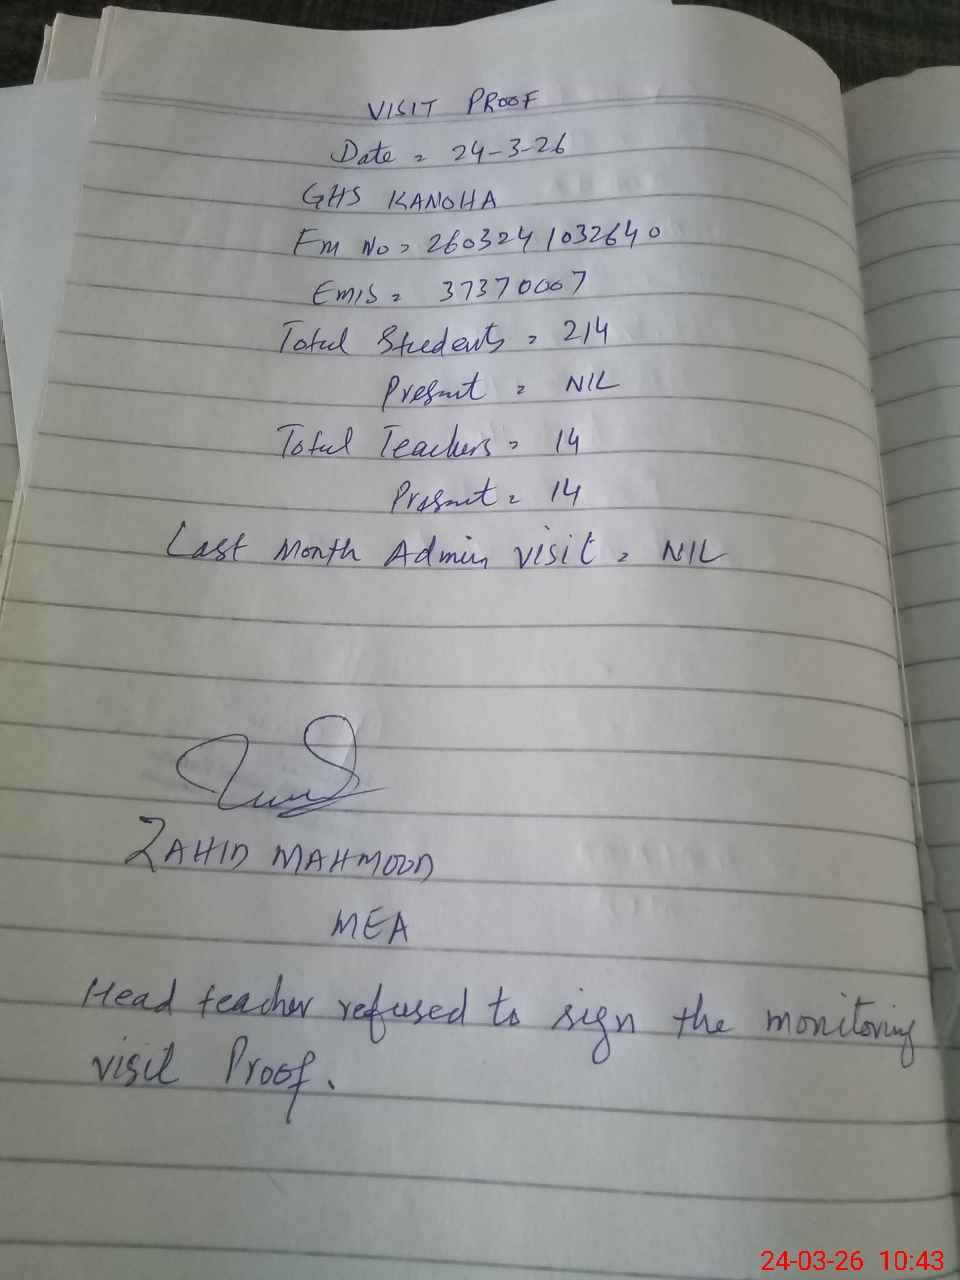 VISIT PROOF
Date = 24-3-26
GHS KANOHA
Fm No = 2603241032640
Emis = 37370007
Total Students = 214
Present = NIL
Total Teachers = 14
Present = 14
Last Month Admin visit = NIL
ZAHID MAHMOOD
MEA
Head teacher refused to sign the monitoring
visit Proof.
24-03-26 10:43